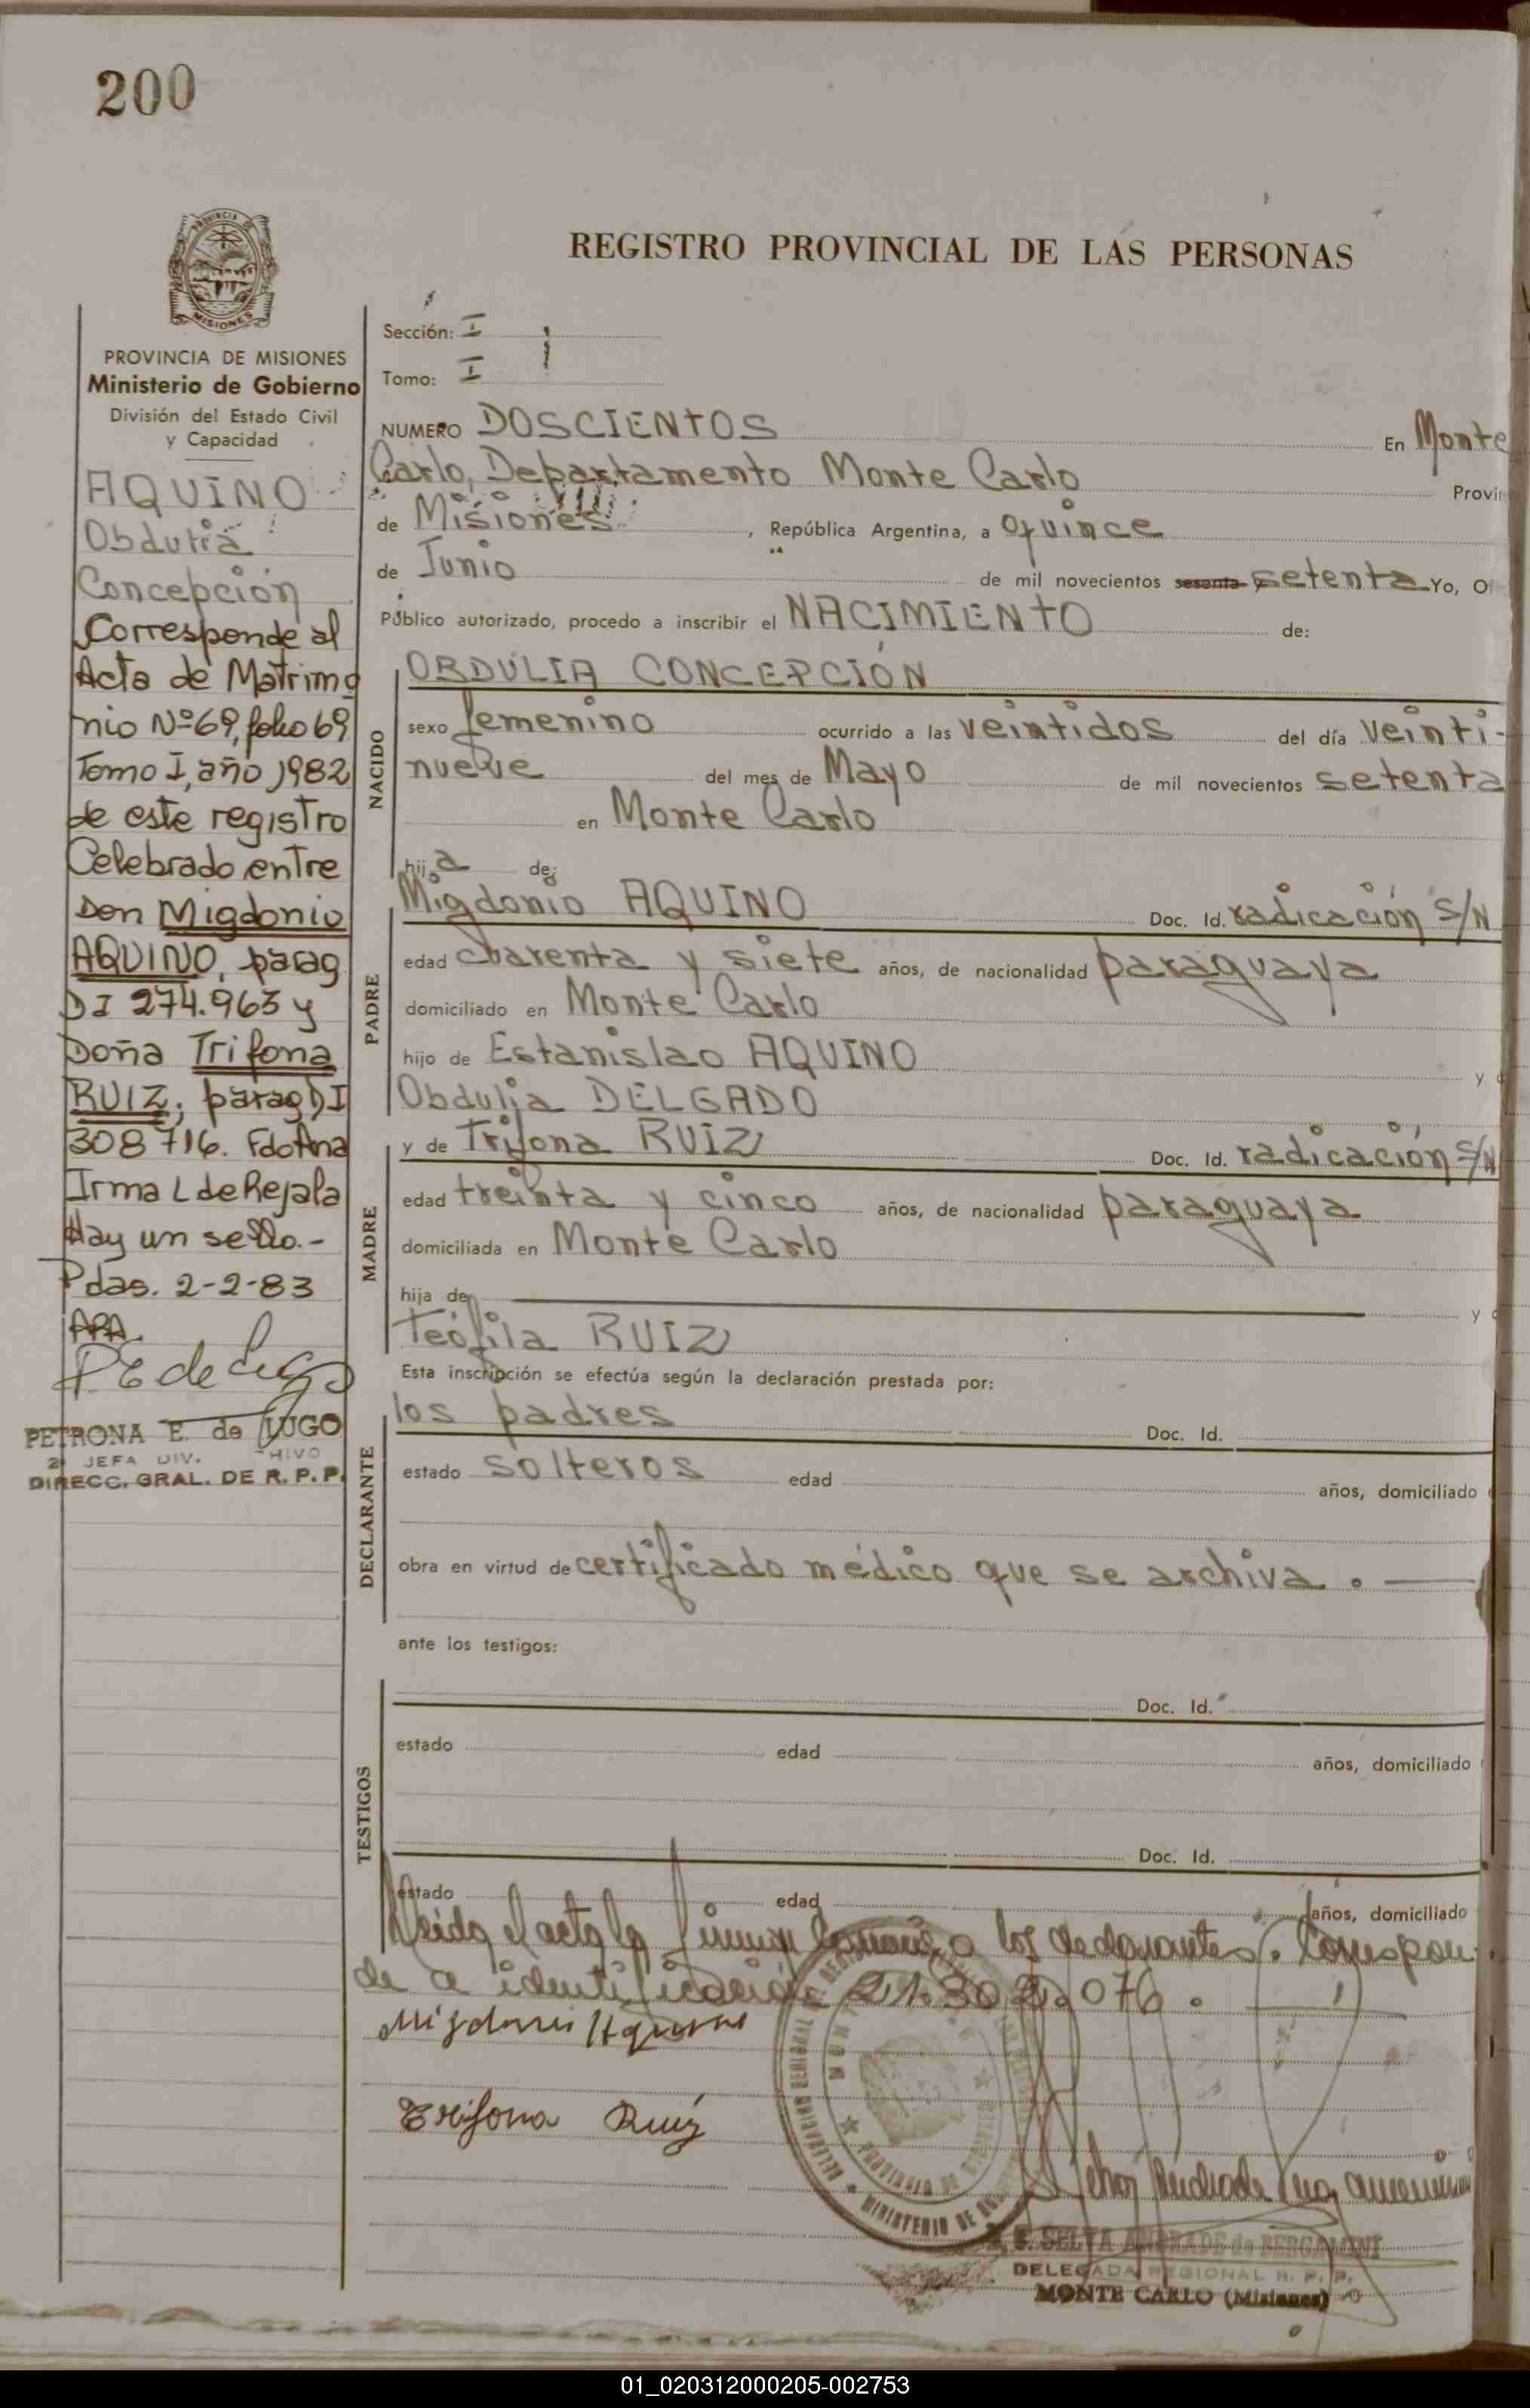 200
PROVINCIA
MISIONES
REGISTRO PROVINCIAL DE LAS PERSONAS
PROVINCIA DE MISIONES
Ministerio de Gobierno
División del Estado Civil
y Capacidad
AQUINO
Obdulia
Concepción
Corresponde al
Acta de Matrimo
nio Nº 69, folio 69
Tomo I, año 1982
de este registro
Celebrado entre
Don Migdonio
AQUINO, parag
DI 274.963 y
Doña Trifona
RUIZ, parag DI
308 716. Fdo Ana
Irma L de Rejala
Hay un sello.-
Pdas. 2-2-83
ARA.
P.E de Lugo
PETRONA E. de LUGO
2 JEFA DIV. HIVO
DIRECC. GRAL. DE R. P. P.
Sección: I
Tomo: I
NUMERO DOSCIENTOS En Monte
Carlo, Departamento Monte Carlo Provin
de Misiones, República Argentina, a quince
de Junio de mil novecientos sesenta y setenta Yo, O
Público autorizado, procedo a inscribir el NACIMIENTO de:
NACIDO
OBDULIA CONCEPCIÓN
sexo femenino ocurrido a las veintidos del día veinti-
nueve del mes de Mayo de mil novecientos setenta
en Monte Carlo
hija de:
PADRE
Migdonio AQUINO Doc. Id. radicación S/N
edad cuarenta y siete años, de nacionalidad paraguaya
domiciliado en Monte Carlo
hijo de Estanislao AQUINO y d
Obdulia DELGADO
MADRE
y de Trifona RUIZ Doc. Id. radicación S/N
edad treinta y cinco años, de nacionalidad paraguaya
domiciliada en Monte Carlo
hija de y d
Teófila RUIZ
Esta inscripción se efectúa según la declaración prestada por:
DECLARANTE
los padres Doc. Id.
estado solteros edad años, domiciliado
obra en virtud de certificado médico que se archiva. —
ante los testigos:
TESTIGOS
Doc. Id.
estado edad años, domiciliado
Doc. Id.
estado edad años, domiciliado
Leída el acta la firman los declarantes. Correspon
de a identificación 21.302.076. —
Migdonio Aquino
Trifona Ruiz
MINISTERIO DE
S. SELVA ANDRADE de BERGAMINI
DELEGADA REGIONAL R. P. P.
MONTE CARLO (Misiones)
01_020312000205-002753